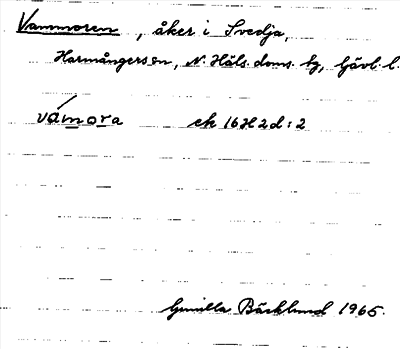 Vammoren, åker i Svedja,
Harmångers sn, N. Häls. doms. bg, Gävl. l.
vámora ek 16H2d:2
Gunilla Bäcklund 1965.